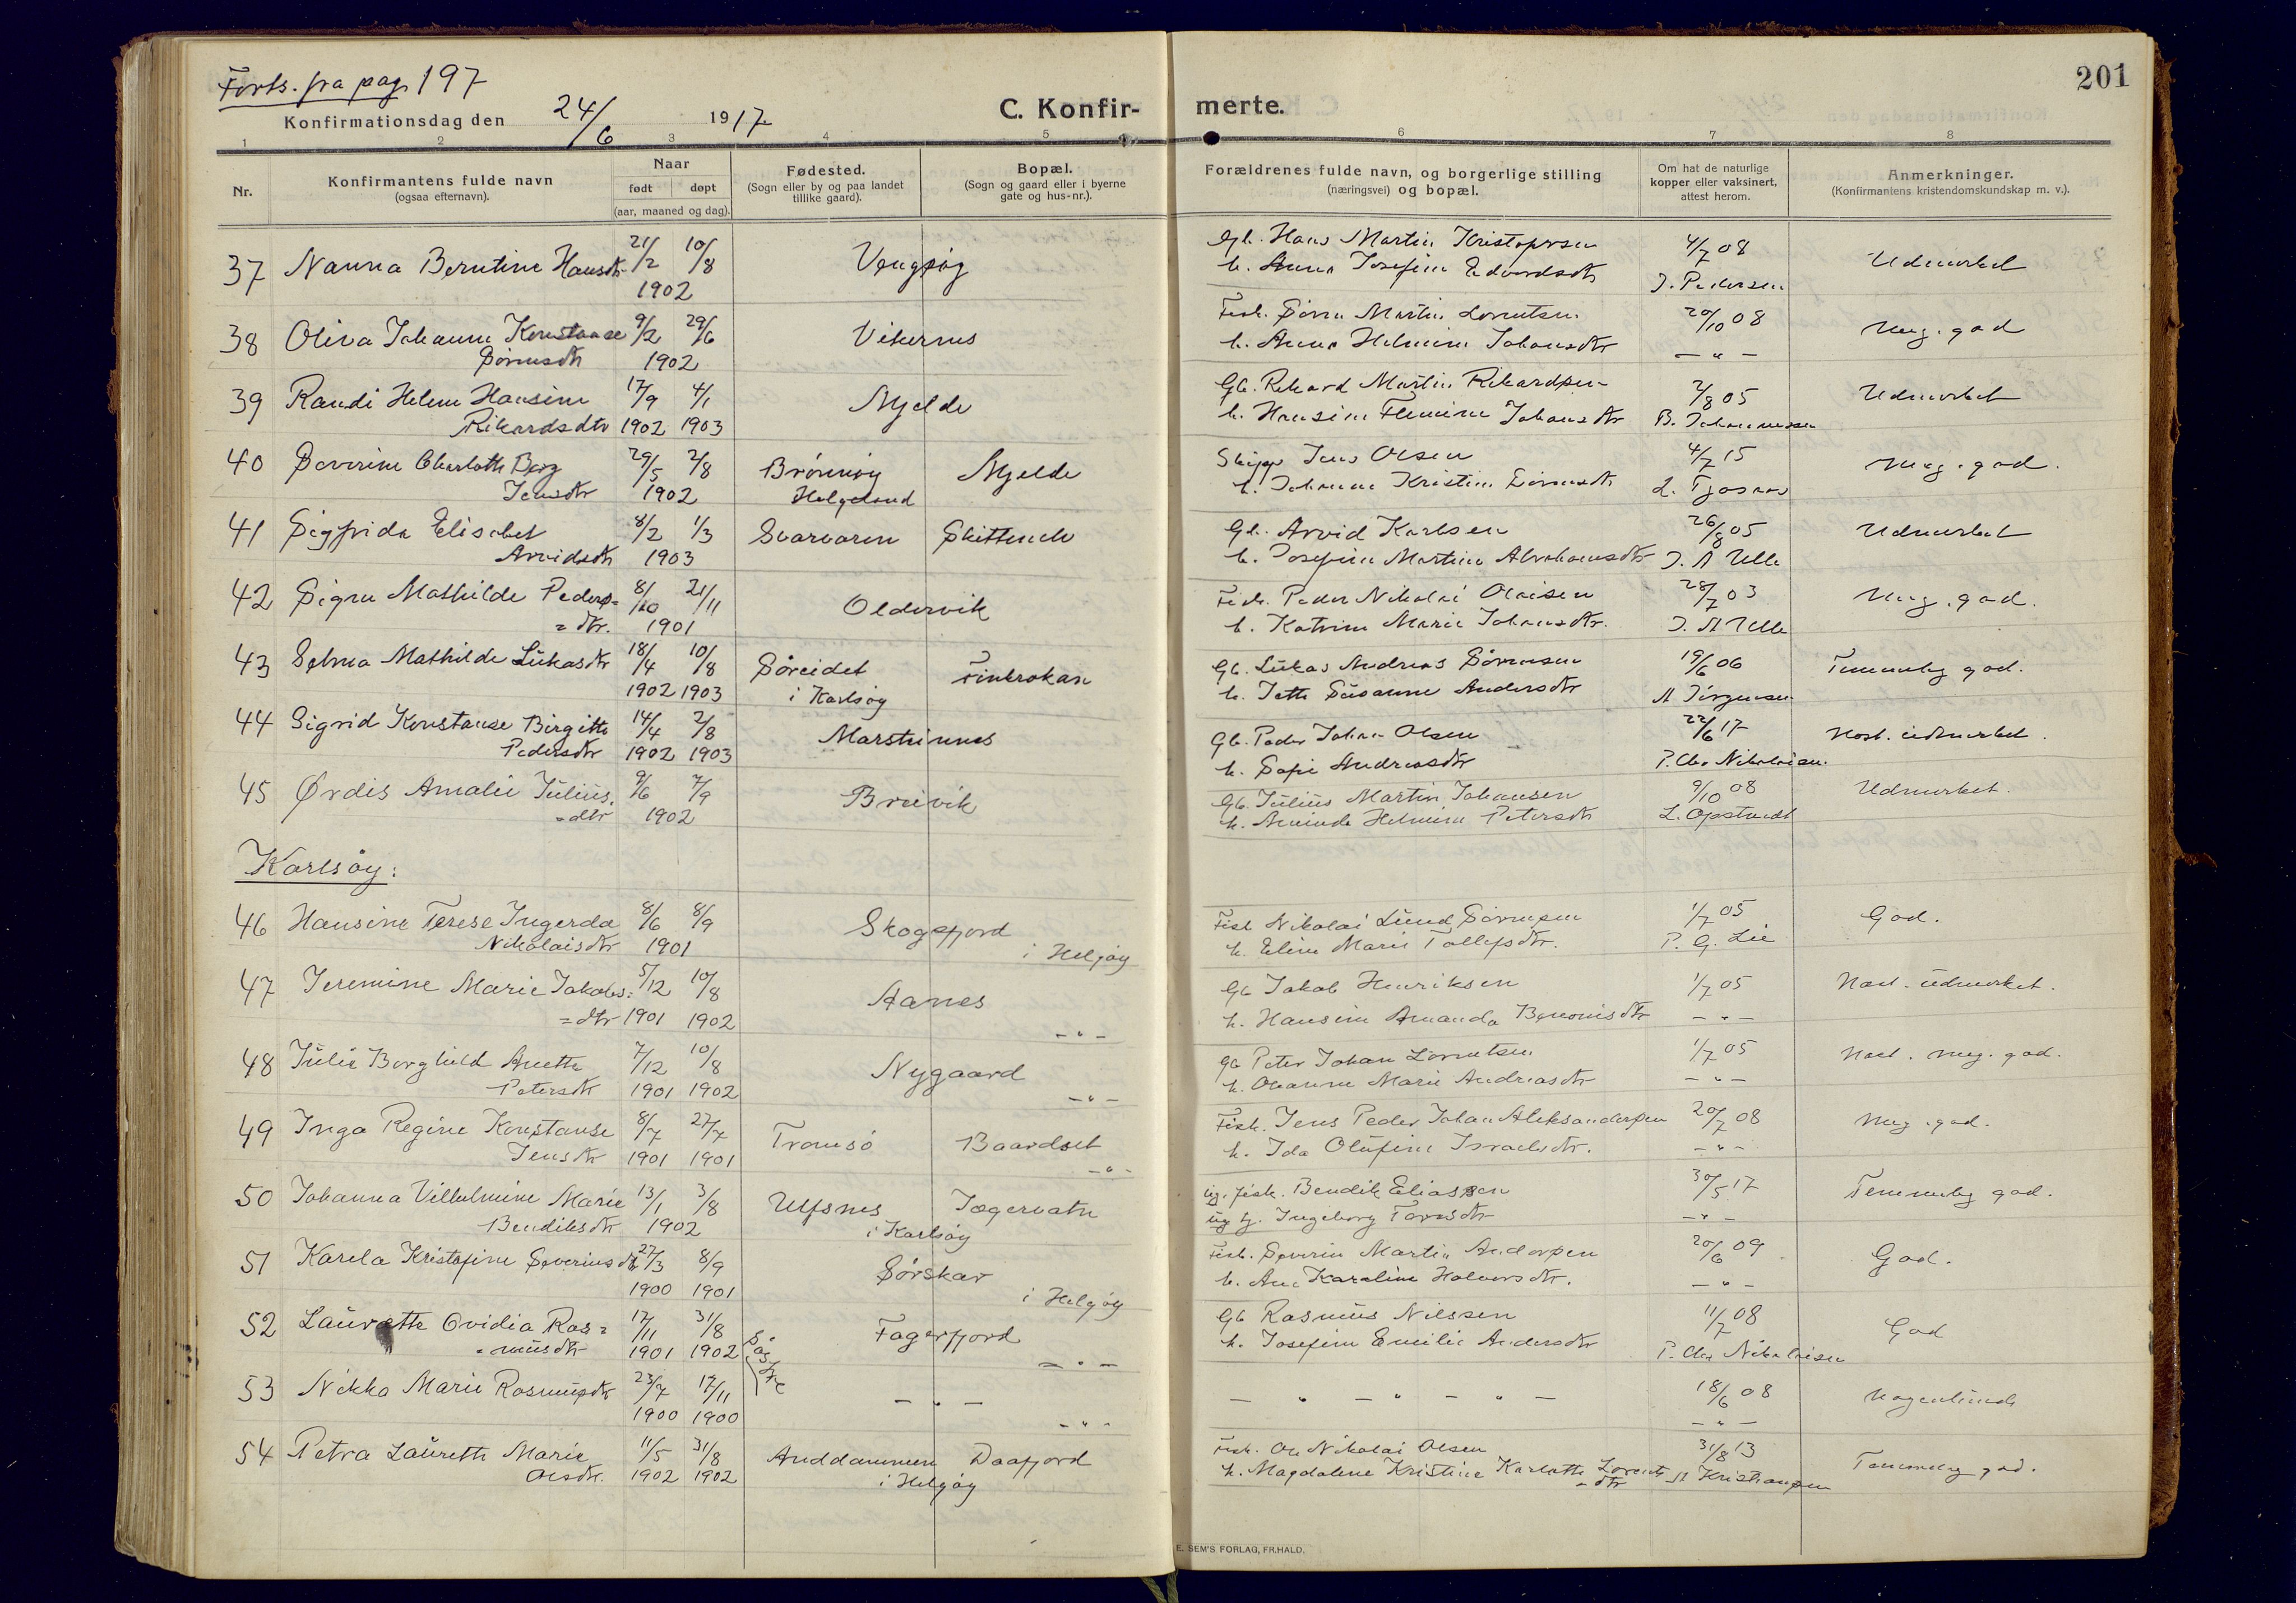 Forts. fra pag. 197
201
Konfirmationsdag den 24/6 1917
C. Konfirmerte.
1 2 3 4 5 6 7 8
Nr.
Konfirmantens fulde navn
(ogsaa efternavn).
Naar
født døpt
(aar, maaned og dag).
Fødested.
(Sogn eller by og paa landet
tillike gaard).
Bopæl.
(Sogn og gaard eller i byerne
gate og hus-nr.).
Forældrenes fulde navn, og borgerlige stilling
(næringsvei) og bopæl.
Om hat de naturlige
kopper eller vaksinert,
attest herom.
Anmerkninger.
(Konfirmantens kristendomskundskap m. v.).
37 Nanna Berntine Hansdtr 21/2 10/8 Vengsøy Gb. Hans Martin Kristofersen 4/7 08 Udmerket
1902 h. Anna Josefine Edvardsdtr J. Pedersen
38 Oliva Johanne Konstanse 9/2 29/6 Vikernes Fisk. Sören Martin Lorentsen 20/10 08 Meg. god
Sörensdtr 1902 h. Anna Helmine Johansdtr — " —
39 Randi Helene Hansine 17/9 4/1 Mjelde Gb. Rikard Martin Rikardsen 2/8 05 Udmerket
Rikardsdtr 1902 1903 h. Hansine Flemine Johansdtr B. Johannessen
40 Severine Charlotte Berg 29/5 2/8 Brönnöy Mjelde Skipp. Jens Olsen 4/7 15 Meg. god.
Jensdtr 1902 Helgeland h. Johanne Kristine Sörensdtr L.
41 Sigfrida Elisabet 8/2 1/3 Svarvaren Skittenelv Gb. Arvid Karlsen 26/8 05 Udmerket
Arvidsdtr 1903 h. Josefine Martine Abrahamsdtr J. A Uelle
42 Sigru Mathilde Peders= 8/10 21/11 Oldervik Fisk. Peder Nikolai Olaisen 28/7 03 Meg. god.
= dtr. 1901 h. Katrine Marie Johansdtr. J. A Uelle
43 Selma Mathilde Lukasdtr 18/4 10/8 Söreidet Finkroken Gb. Lukas Andreas Sörensen 19/6 06 Temmelig god.
1902 1903 i Karlsøy h. Jette Susanne Andersdtr A Jörgensen
44 Sigrid Konstanse Birgitte 14/4 2/8 Marsteinnes Gb. Peder Johan Olsen 22/6 17 Nost. udmerket.
Pedersdtr 1902 1903 h. Sofie Andreasdtr P. Chr Nikolaisen.
45 Ørdis Amalie Julius 9/6 7/9 Breivik Gb. Julius Martin Johansen 9/10 08 Udmerket.
=dtr 1902 h. Aminda Helmine Petersdtr L. Opstvedt
Karlsøy:
46 Hansine Terese Ingerda 8/6 8/9 Skogsfjord Fisk Nikolai Lund Sörensen 1/7 05 God.
Nikolaisdtr 1901 i Helgøy h. Eline Marie Tollefsdtr. P. G. Lie
47 Jeremine Marie Jakobs= 5/12 10/8 Aanes Gb Jakob Henriksen 1/7 05 Nost. udmerket.
=dtr 1901 1902 — " — h. Hansine Amanda Benonisdtr — " —
48 Julie Borghild Anette 7/12 10/8 Nygaard Gb Peter Johan Lorentsen 1/7 05 Nost. meg. god.
Petersdtr 1901 1902 — " — h. Oleanne Marie Andreasdtr — " —
49 Inga Regine Konstanse 8/7 27/7 Tromsö Baardset Fisk. Jens Peder Johan Aleksandersen 20/7 08 Meg. god.
Jensdtr 1901 1901 — " — h. Ida Olufine Israelsdtr. — " —
50 Johanna Vilhelmine Marie 13/1 3/8 Ulfsnes Jægervatn ug. fisk. Bendik Eliassen 30/5 17 Temmelig god.
Bendiksdtr 1902 i Karlsøy ug tj. Ingeborg Toresdtr — " —
51 Karela Kristofine Severinsdtr 27/3 8/9 Sörskar Fisk. Severin Martin Andersen 20/6 09 God.
1900 1901 i Helgøy h. Ane Karoline Halvorsdtr. — " —
52 Laurette Ovidia Ras= 17/11 31/8 Fagerfjord Gb Rasmus Nilssen 11/7 08 God
=musdtr 1901 1902 Søstre — " — h. Josefine Emilie Andersdtr P. Chr Nikolaisen
53 Nikka Marie Rasmusdtr 23/7 17/11 — " — — " — " — " — 18/6 08 Nogenlunde
1900 1900 — " — — " —
54 Petra Laurette Marie 11/5 31/8 Anddammen Daafjord Fisk. Ole Nikolai Olsen 31/8 13 Temmelig god.
Olsdtr. 1902 1902 i Helgøy h. Magdalene Kristine Karlotte Lorents A Kristiansen
=dtr
E. SEM'S FORLAG, FR.HALD.